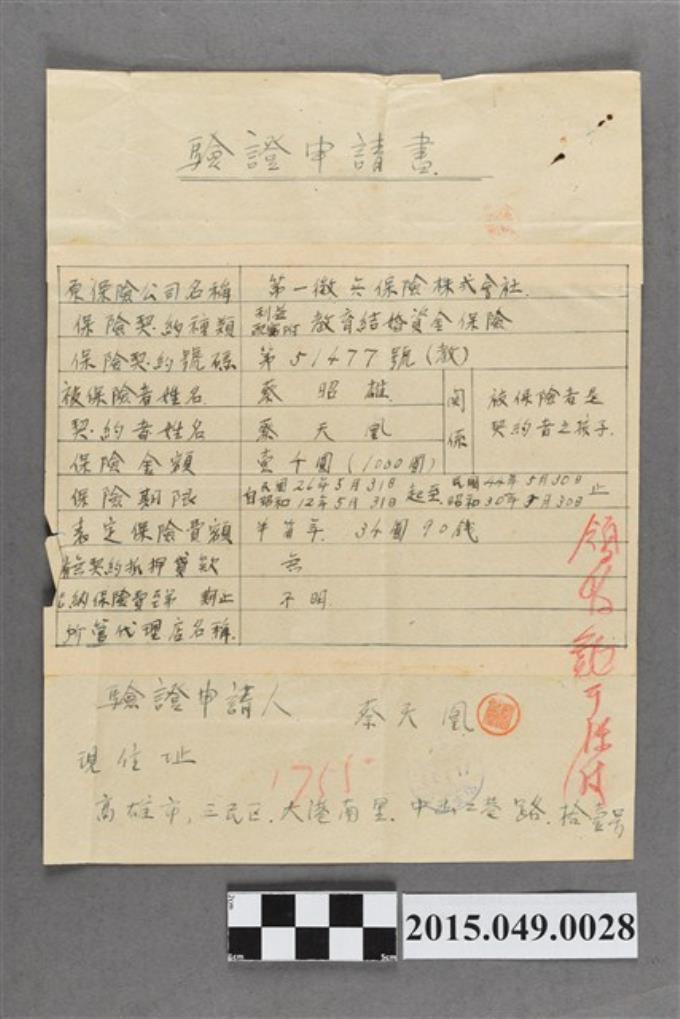 驗證申請書
原保險公司名稱 第一徵兵保險株式會社.
保險契約種類 利益配當附 教育結婚資金保險
保險契約號碼 第51477號(教)
被保險者姓名 蔡昭雄 関係 被保險者是契約者之孩子.
契約者姓名 蔡天凰
保險金額 壹千圓(1000圓)
保險期限 自民國26年5月31日 昭和12年5月31日 起至 民國44年5月30日 昭和30年5月30日 止
表定保險費額 半箇年. 34圓90銭
契約抵押貸款 無
納保險費至第 期止 不明.
所管代理店名稱.
驗證申請人 蔡天凰
現住址
1755
高雄市,三民区.大港南里.中 路.拾壹号
2015.049.0028
6cm 5cm